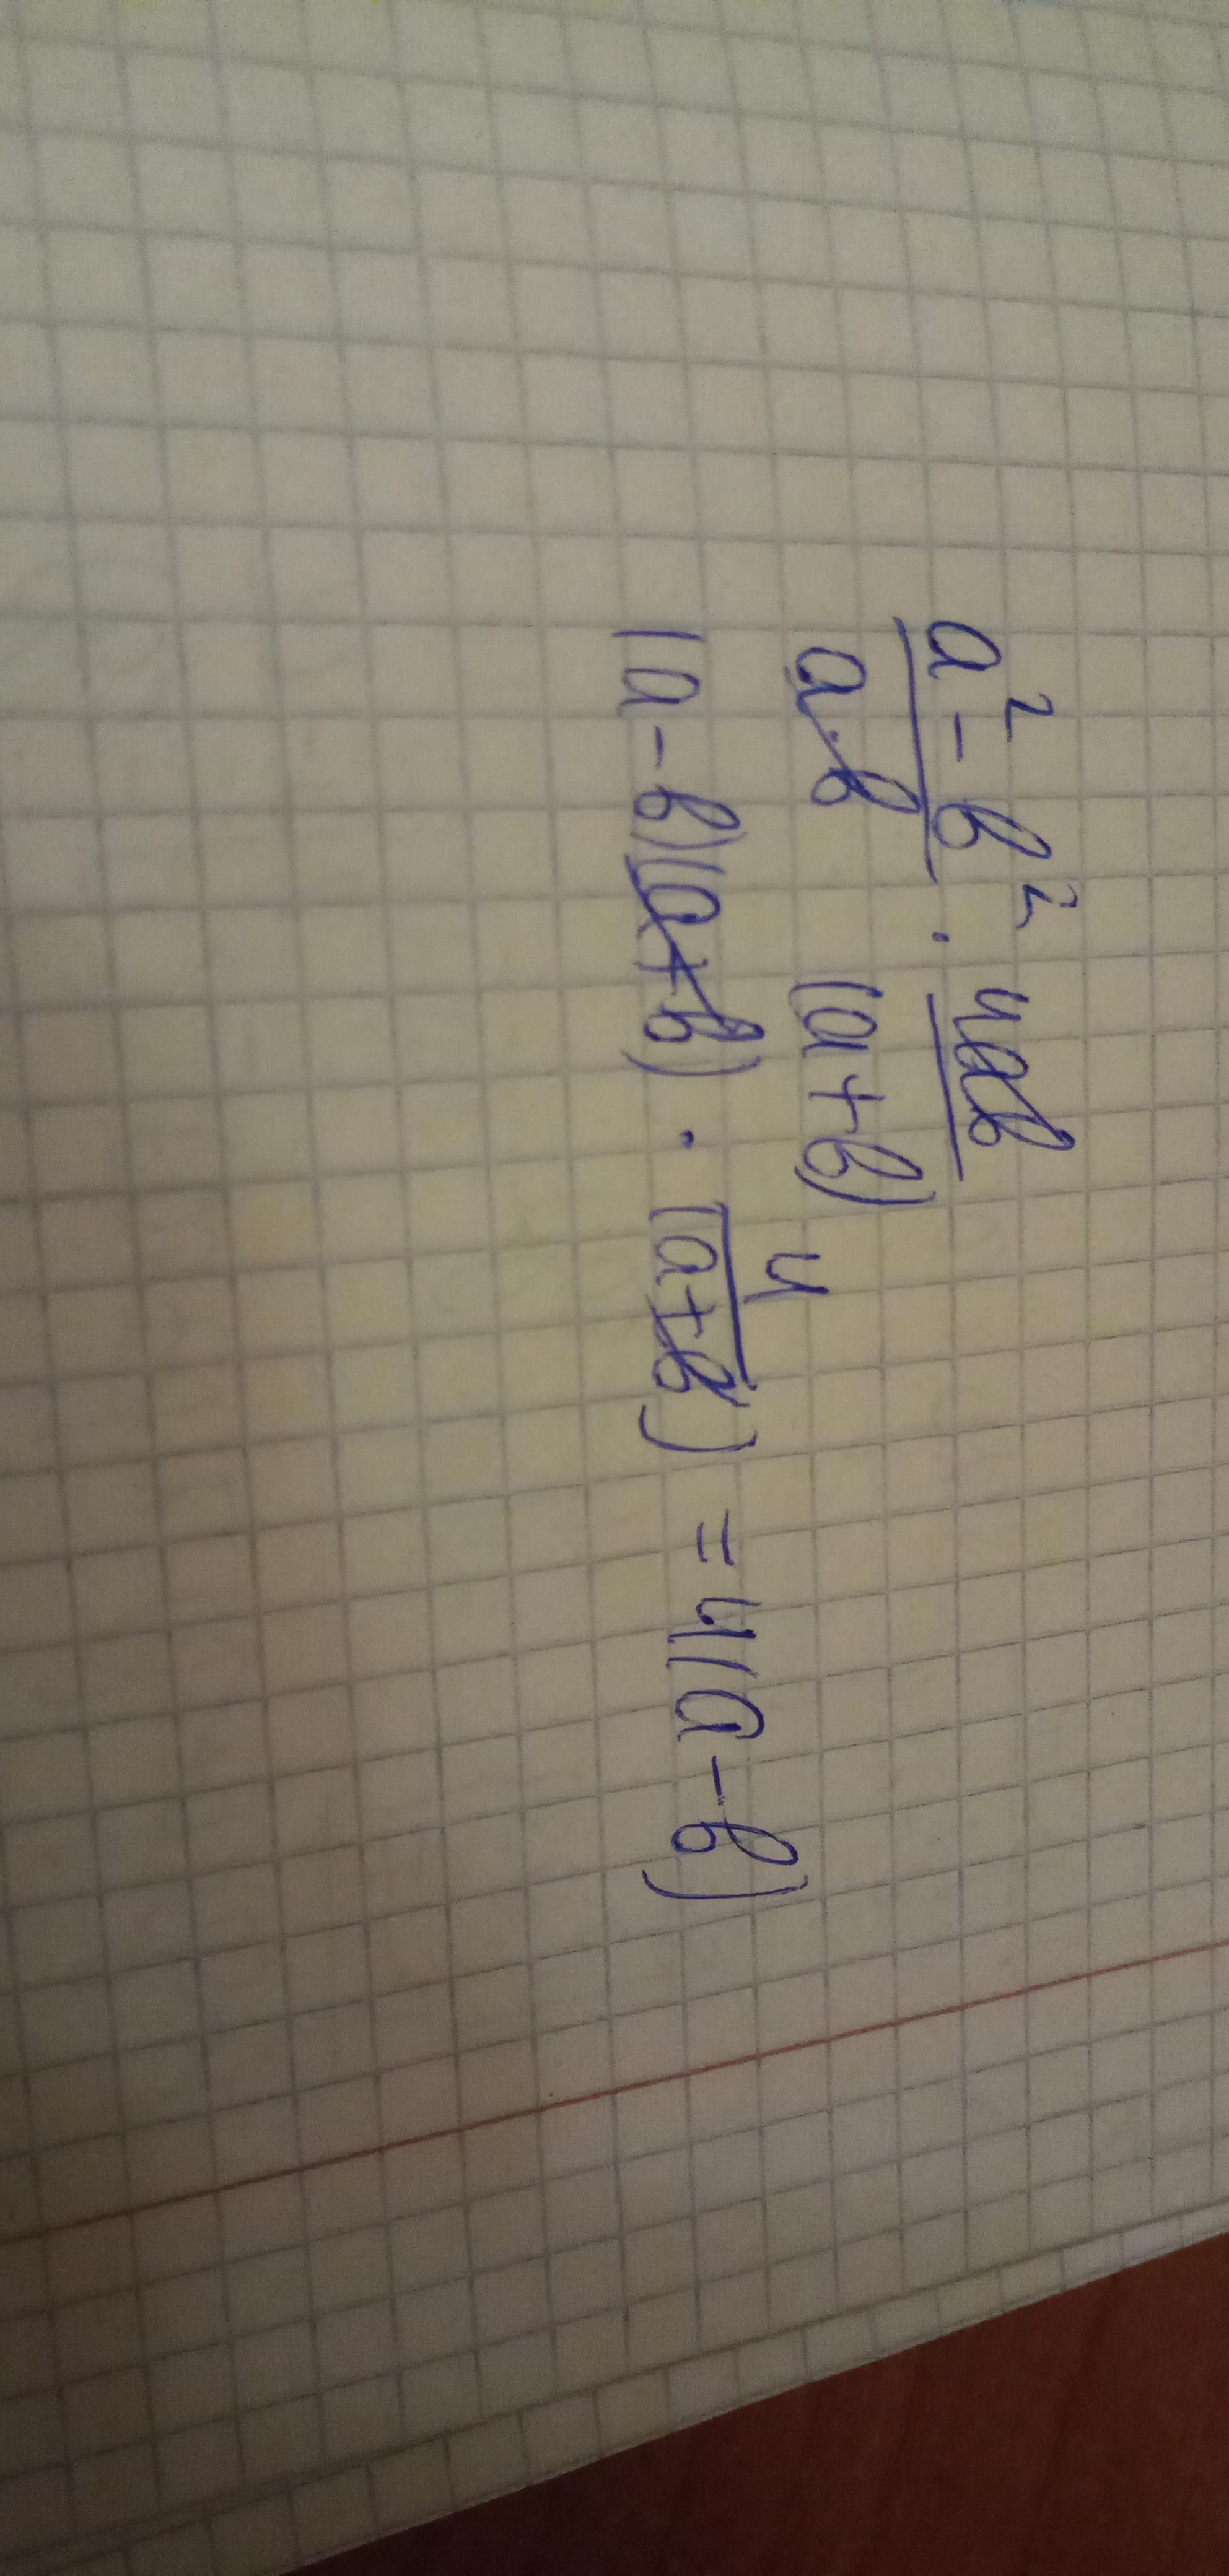 a² - b² / a·b · 4ab / (a+b)
(a-b)(a+b) · 4 / (a+b) = 4(a-b)